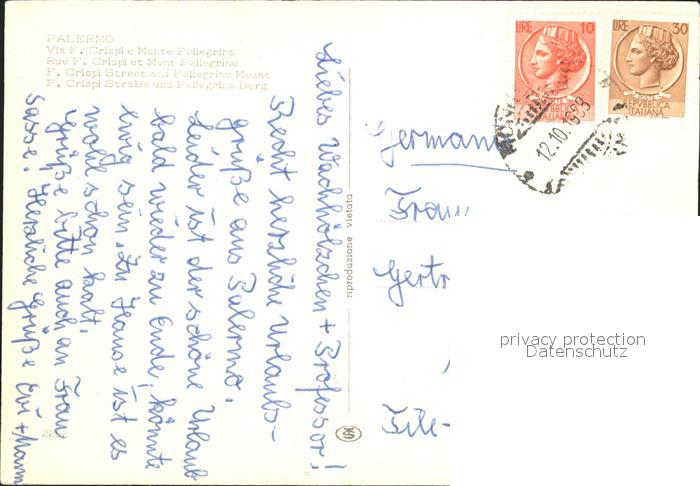 PALERMO
Via F. Crispi e Monte Pellegrino
Rue F. Crispi et Mont Pellegrino
F. Crispi Street and Pellegrino Mount
F. Crispi Straße und Pellegrino Berg
Liebes Wachhölzchen + Professor!
Recht herzliche Urlaubs-
grüße aus Palermo.
Leider ist der schöne Urlaub
bald wieder zu Ende, könnte
ewig sein. Zu Hause ist es
wohl schon kalt.
Grüße bitte auch an Frau
Sasse. Herzliche Grüße Evi + Mann
riproduzione vietata
LIRE 10
REPVBBLICA
ITALIANA
LIRE 30
REPVBBLICA
ITALIANA
12.10.1968
Germany
Frau
Gertr
privacy protection
Datenschutz